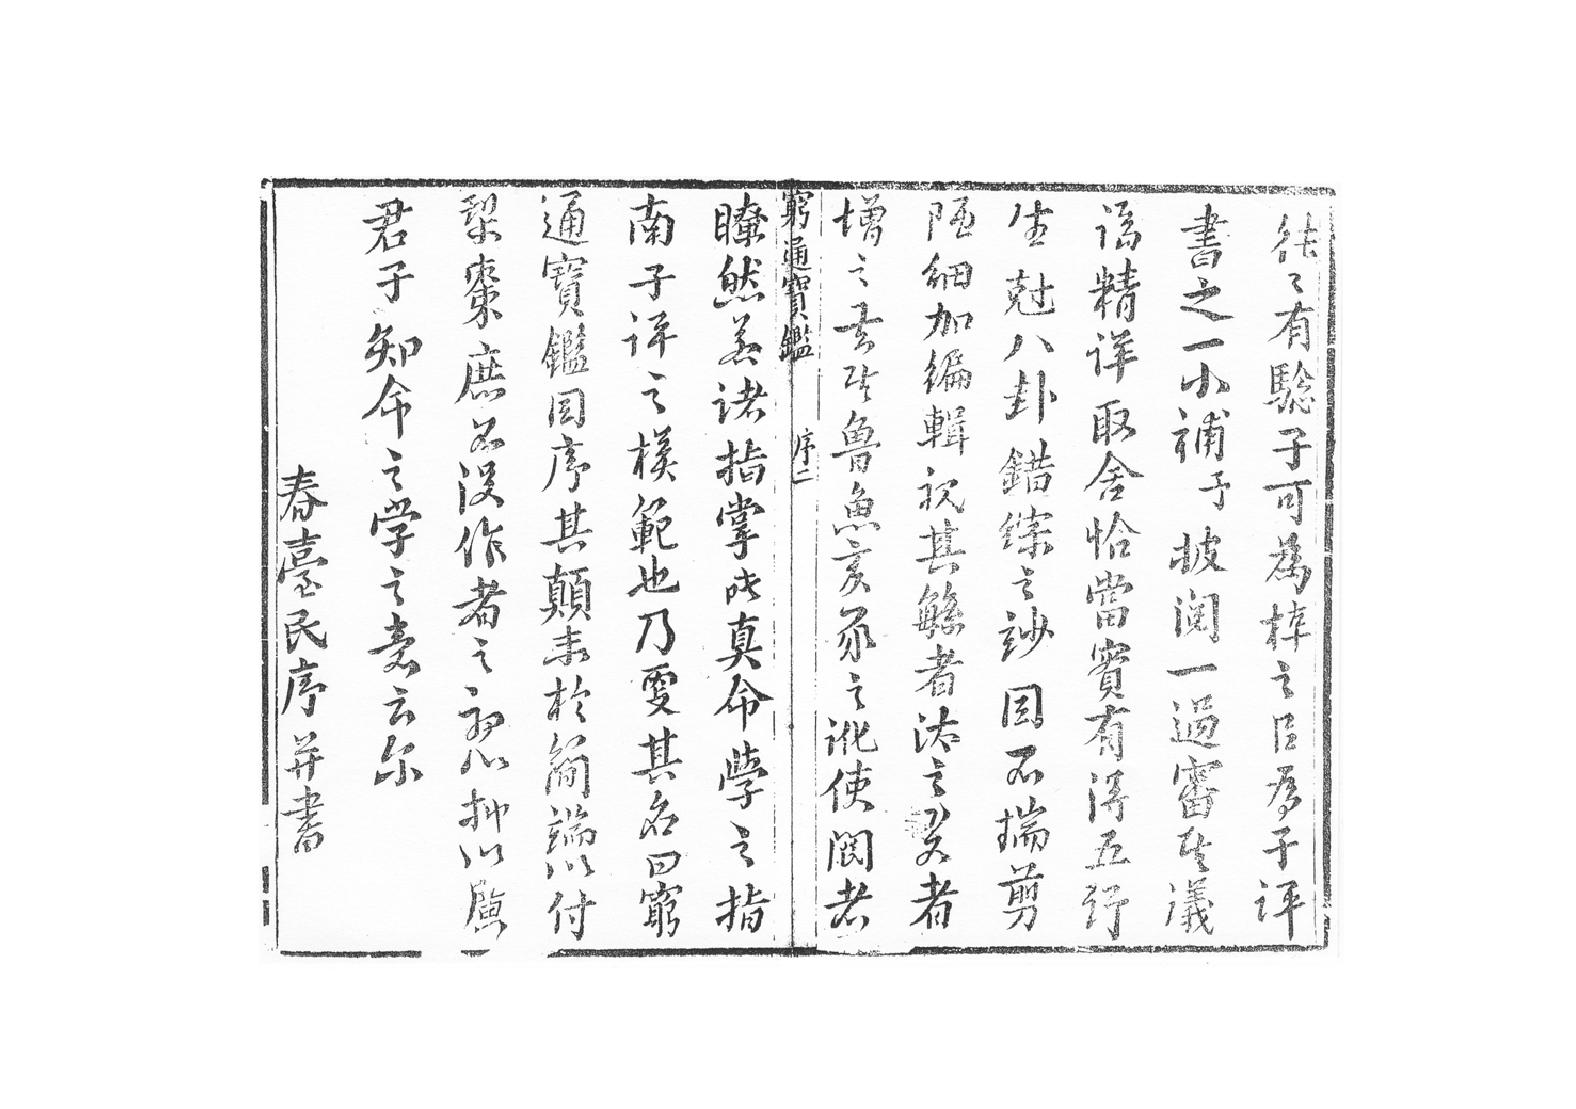 徃々有驗子可為梓之以為子評
書之一小補予披閱一過審其議
論精詳取舍恰當實有得五行
生尅八卦錯綜之妙因不揣剪
陋細加編輯視其緐者汰之者
增之其魯魚亥豕之訛使閱者
窮通寶鑑
序二
瞭然若諸指掌此真命學之指
南子評之模範也乃更其名曰窮
通寶鑑因序其顛末於簡端以付
梨棗庶不沒作者之初心抑以廣
君子知命之学之意云尔
春臺氏序并書